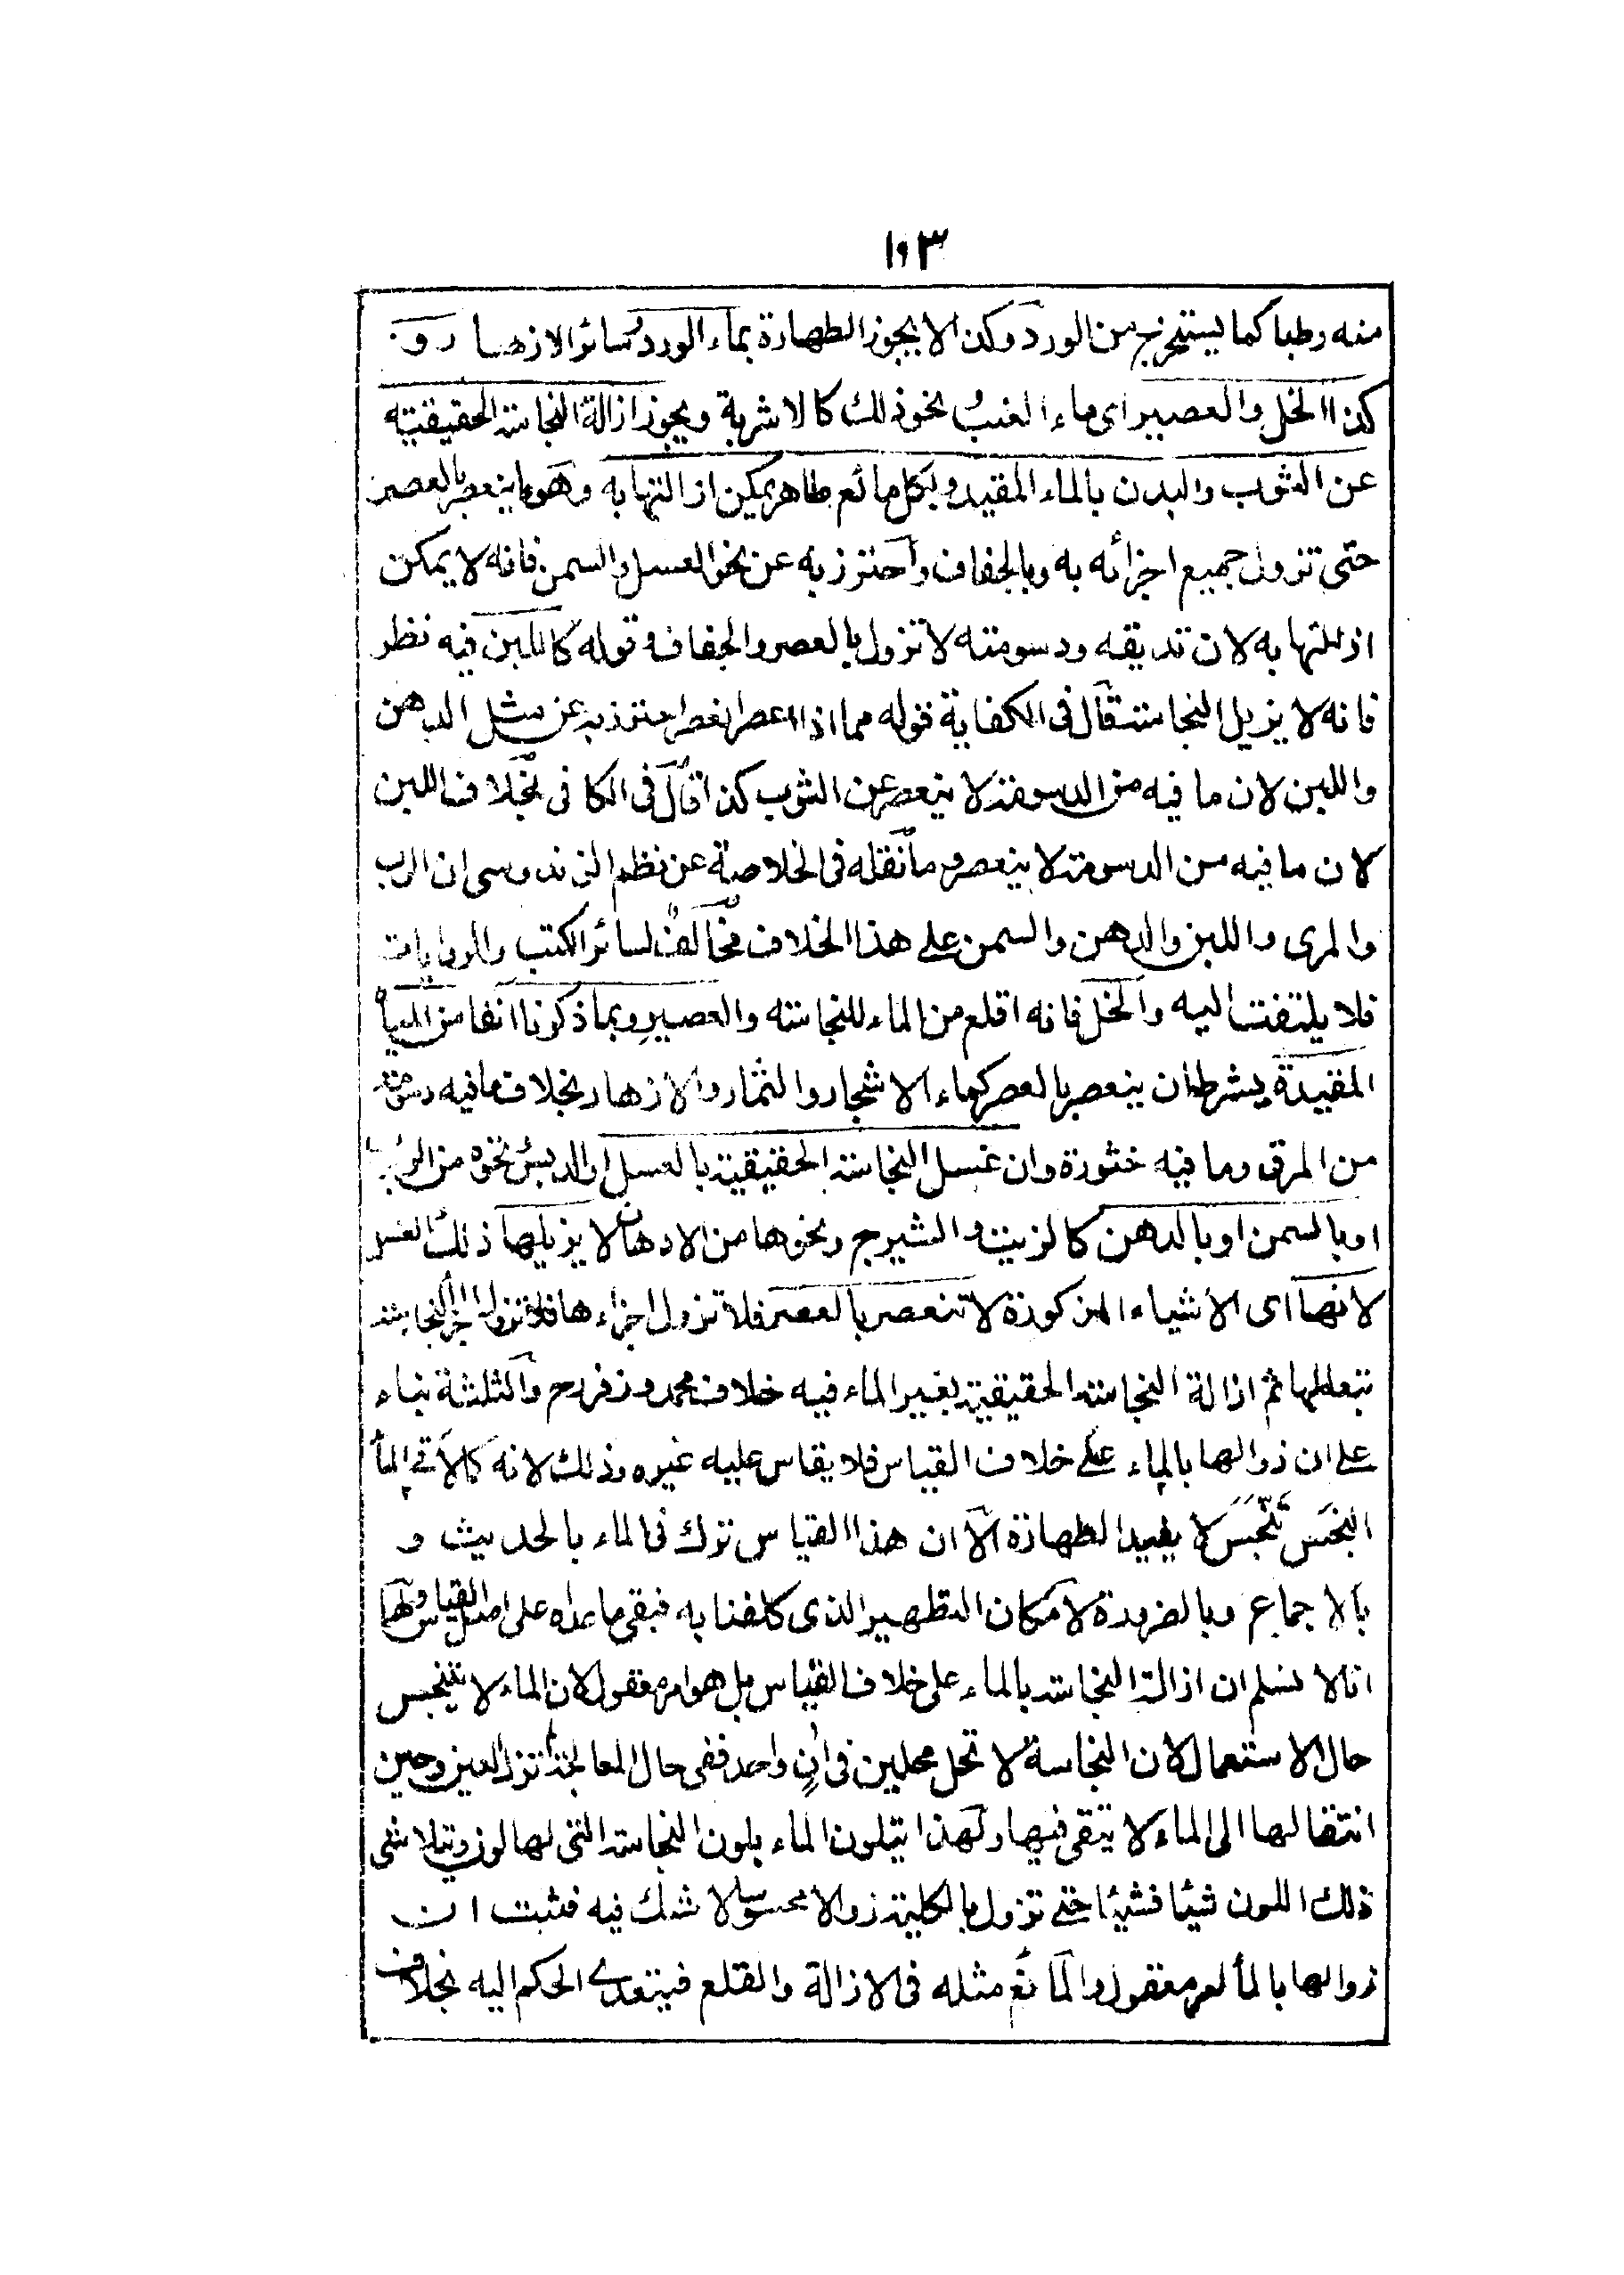 ١٥٣
منه رطبا كما يستخرج من الورد وكذا لا يجوز الطهارة بماء الورد وسائر الازهار و
كذا الخل والعصير اى ماء العنب ونحو ذلك كالاشربة ويجوز ازالة النجاسة الحقيقية
عن الثوب والبدن بالماء المقيد وبكل مائع طاهر يمكن ازالتها به وهو ما ينعصر بالعصر
حتى تزول جميع اجزائه به وبالجفاف واحترز به عن نحو العسل والسمن فانه لا يمكن
ازالتها به لان تدبقه ودسومته لا تزول بالعصر والجفاف وقوله كاللبن فيه نظر
فانه لا يزيل النجاسة قال فى الكفاية قوله مما اذا اعصر انعصر احترز به عن مثل الدهن
واللبن لان ما فيه من الدسومة لا ينعصر عن الثوب كذا قال فى الكافى بخلاف اللبن
لان ما فيه من الدسومة لا ينعصر وما نقله فى الخلاصة عن نظم الزندوسى ان الرب
والمرى واللبن والدهن والسمن على هذا الخلاف مخالف لسائر الكتب والروايات
فلا يلتفت اليه والخل فانه اقلع من الماء للنجاسة والعصير وبما ذكرنا انفا من المياه
المقيدة بشرط ان ينعصر بالعصر كماء الاشجار والثمار والازهار بخلاف ما فيه دسومة
من المرق وما فيه خثورة وان غسل النجاسة الحقيقية بالعسل او الدبس ونحوه من الرب
او بالسمن او بالدهن كالزيت والشيرج ونحوها من الادهان لا يزيلها ذلك الغسل
لانها اى الاشياء المذكورة لا تنعصر بالعصر فلا تزول اجزاءها فلا تزول اجزاء النجاسة
تبعا لها ثم ازالة النجاسة الحقيقية بغير الماء فيه خلاف محمد وزفر رح والثلثة بناء
على ان زوالها بالماء على خلاف القياس فلا يقاس عليه غيره وذلك لانه كما لاقى الماء
النجس تنجس لا يفيد الطهارة الا ان هذا القياس ترك فى الماء بالحديث و
بالاجماع وبالضرورة لامكان التطهير الذى كلفنا به فبقى ما عداه على اصل القياس ولهما
انا لا نسلم ان ازالة النجاسة بالماء على خلاف القياس بل هو امر معقول لان الماء لا يتنجس
حال الاستعمال لان النجاسة لا تحل محلين فى ان واحد ففى حال المعالجة تزول العين وحين
انتقالها الى الماء لا يبقى فيها ولهذا يتلون الماء بلون النجاسة التى لها لون ويتلاشى
ذلك اللون شيئا فشيئا حتى تزول بالكلية زوالا محسوسا لا شك فيه فثبت ان
زوالها بالماء امر معقول والمائع مثله فى الازالة والقلع فيتعدى الحكم اليه بخلاف